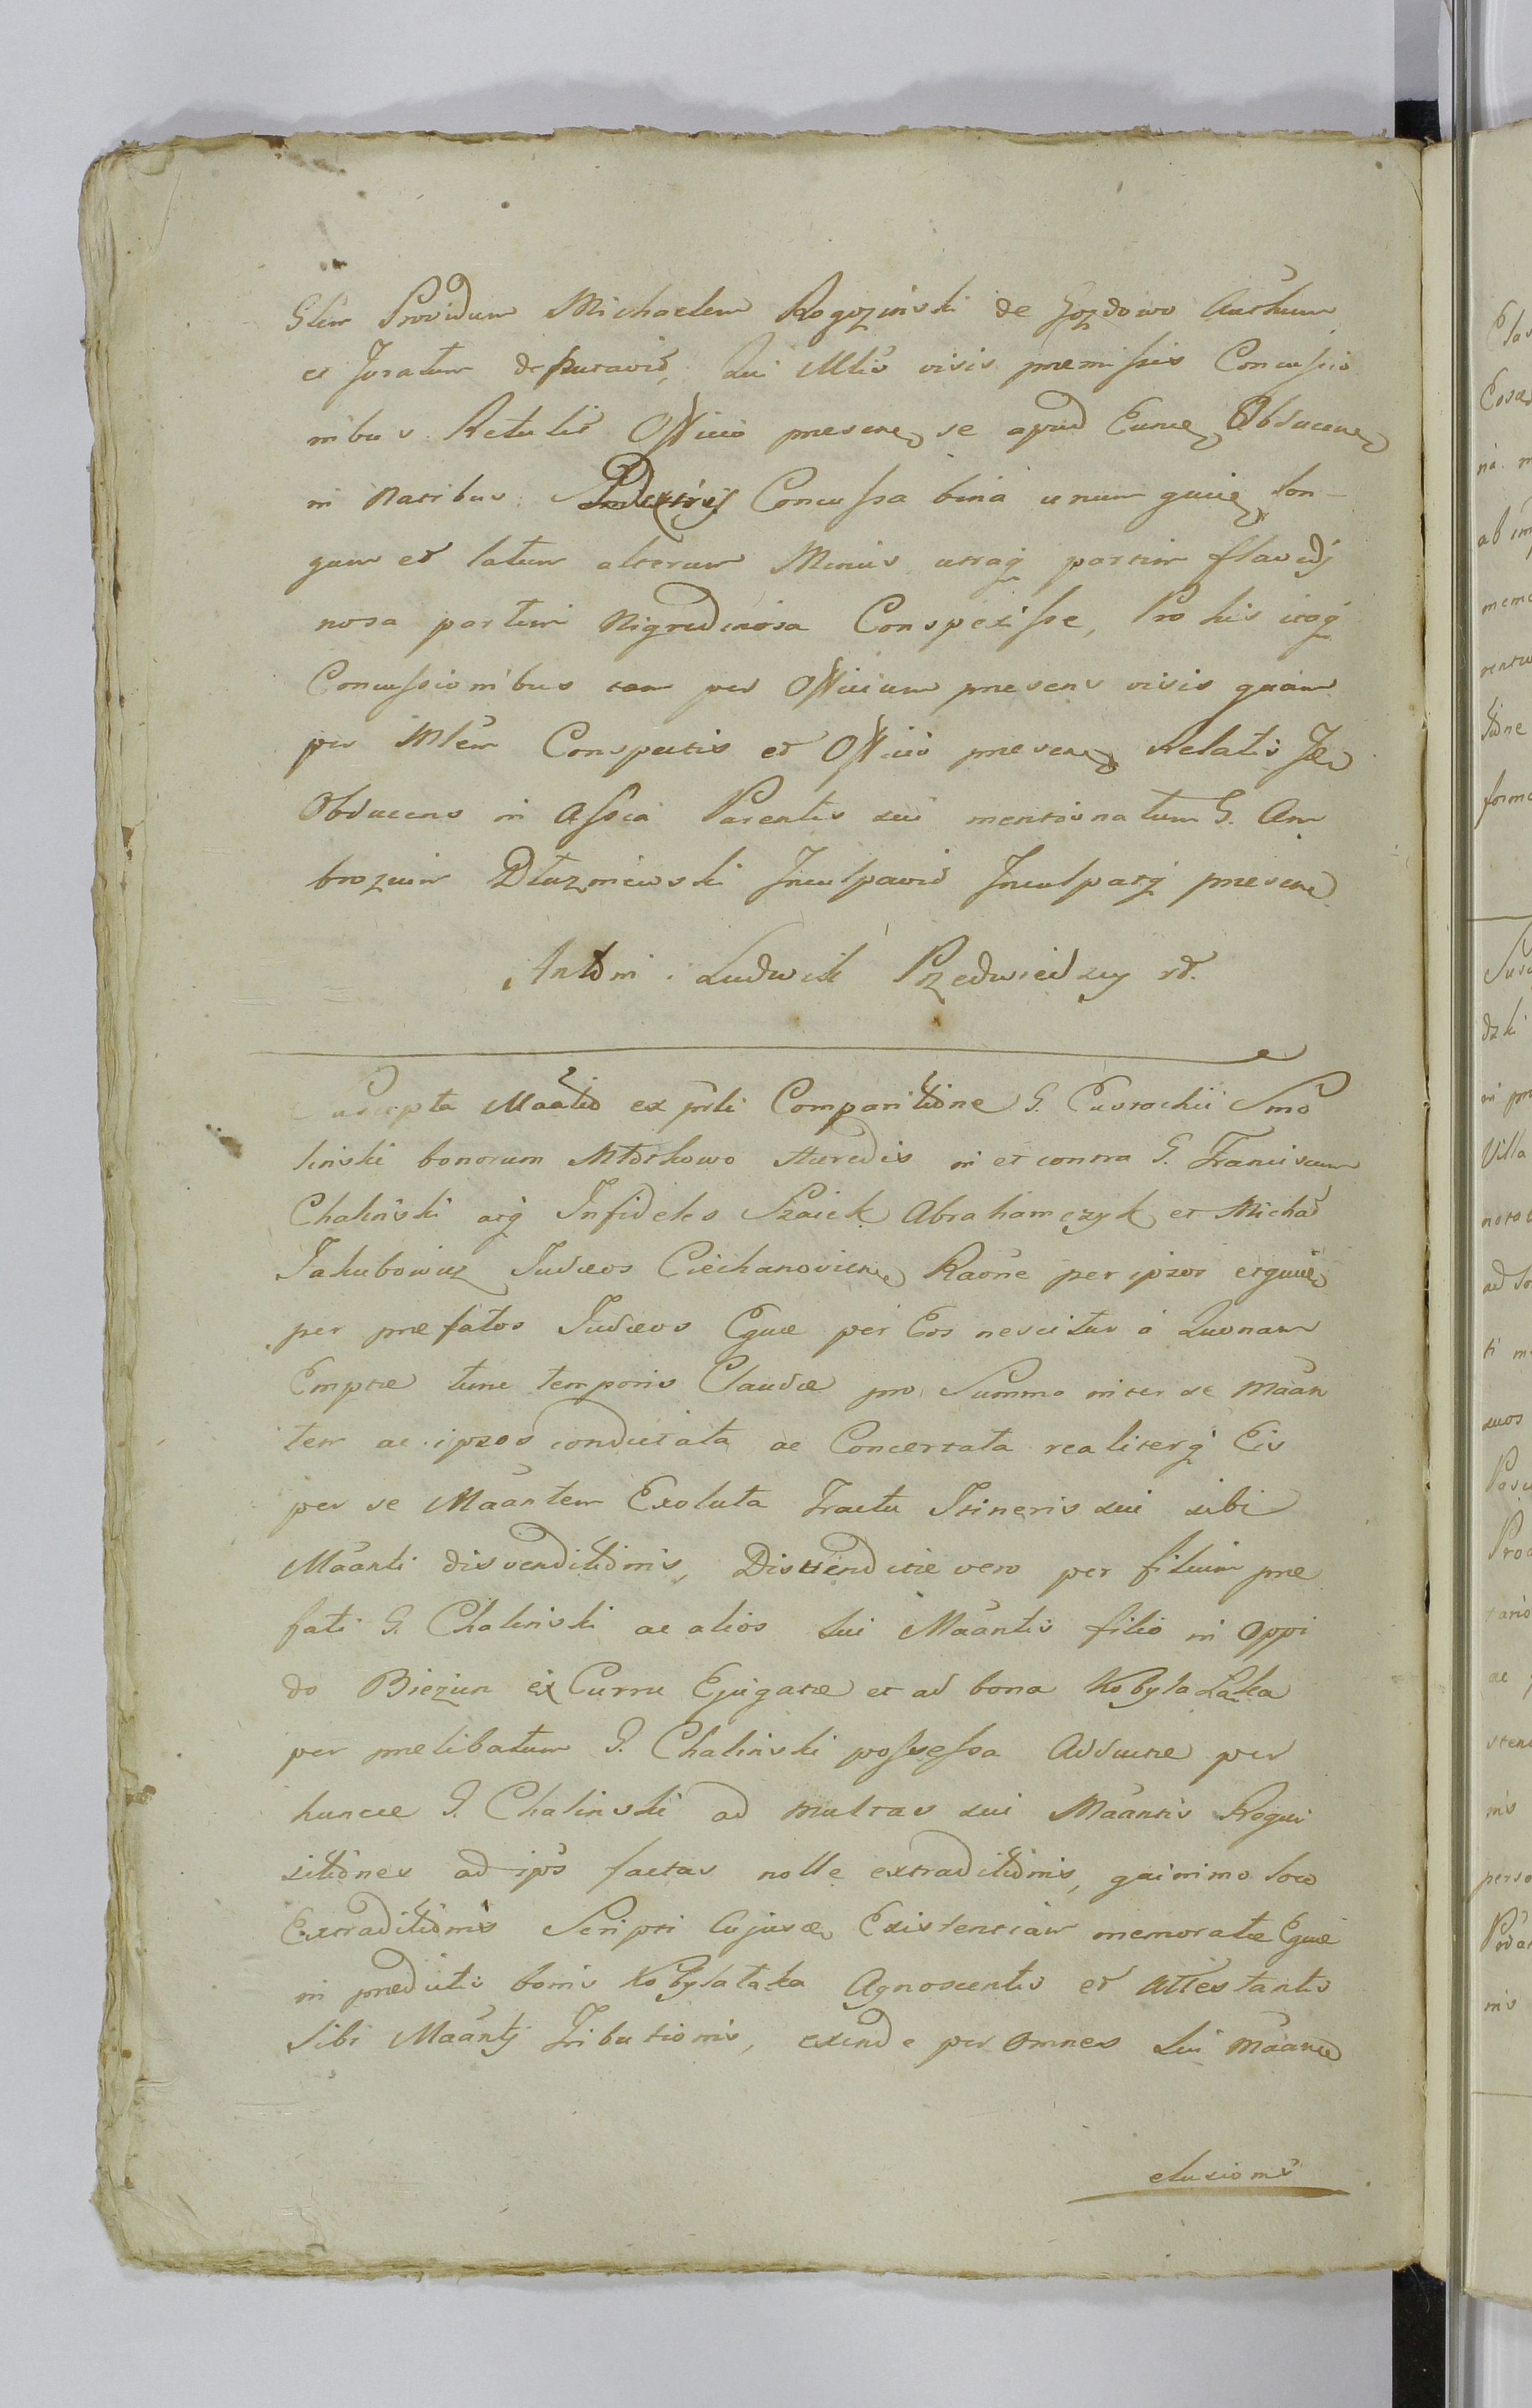 Glem Providum Michaelem Rogoziński de Gozdowo Authum
et Juratum deputavit, Qui Mlis visis premissis Concussio
nibus Retulit Officio presen, se apud Eunde Obducen
in Natibus Concussa bina unum quie lon-
gum et latum alterum Minus utraq partim flavedi
nosa partim Nigredinosa Conspexisse, Pro his itaq
Concussionibus tam per Officium presens visis quam
per Mlem Conspectis et Officio presen Relatis Ide
Obducens in Assia Parentis sui mentionatum G. Am
brozium Dłuzniewski Inculpavit Inculpatq presen
Antoni Ludwik Przedwiedzki
Suscepta Maatio ex prti Comparitione G. Eustachii Smo
linski bonorum Młotkowo Hæredis in et contra G. Franciscum
Chalinski atq Infideles Szaiek Abrahamczyk et Michał
Jakubowicz Judæos Ciechanovien Raone per ipsos
per præfatos Judæos Equæ per Eos nescitur a Quonam
Emptæ tunc temporis Claudæ pro Summa inter se Maan
tem ac ipsos condictata ac Concertata realiterq Eis
per se Maantem Exoluta Tractu Itineris sui sibi
Maanti disvenditionis, Disvenditæ vero per filium præ
fati G. Chalinski ac alios Sui Maantis filio in Oppi
do Biezun ex Curru Ejugatæ et ad bona Kobyla Łąka
per prælibatum G. Chalinski possessa Adductæ per
huncce G. Chalinski ad multas sui Maantis Requi
sitiones ad ips factas nolle extraditionis, quinimo loco
Extraditionis Scripti Cujusce Existentiam memoratæ Equæ
in prædictis bonis Kobylałąka Agnoscentis et Attestantis
Sibi Maanti Tributionis, exinde per omnes Sui Maan
elusionis